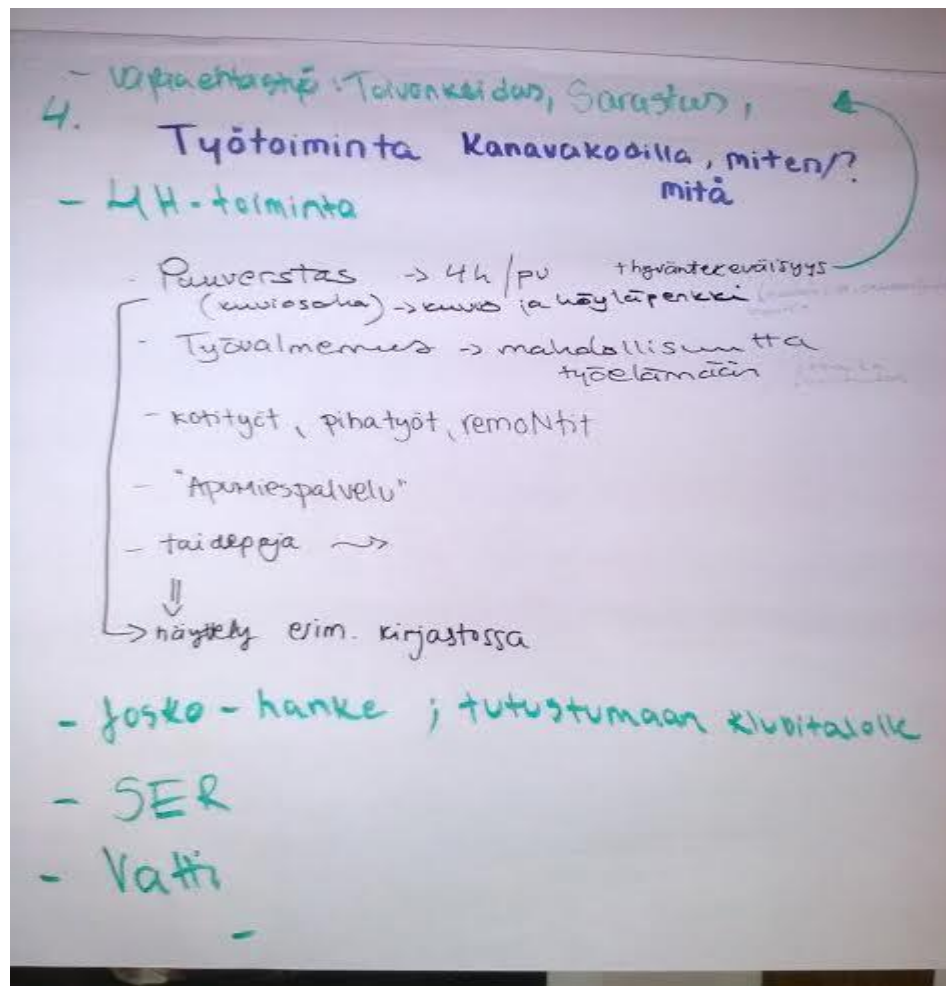 - Vapaaehtastyö: Toivonkeidas, Sarastus,
4.
Työtoiminta Kanavakodilla, miten/?
mitä
- 4H-toiminta
- Puuverstas -> 4h/pv +hyväntekeväisyys
(kuviosaha) -> kuvio ja höyläpenkki
- Työvalmennus -> mahdollisuutta
työelämään
- kotityöt, pihatyöt, remoNtit
- "Apumiespalvelu"
- taidepaja
-> näyttely esim. kirjastossa
- Josko-hanke ; tutustumaan klubitalolle
- SER
- Vatti
-